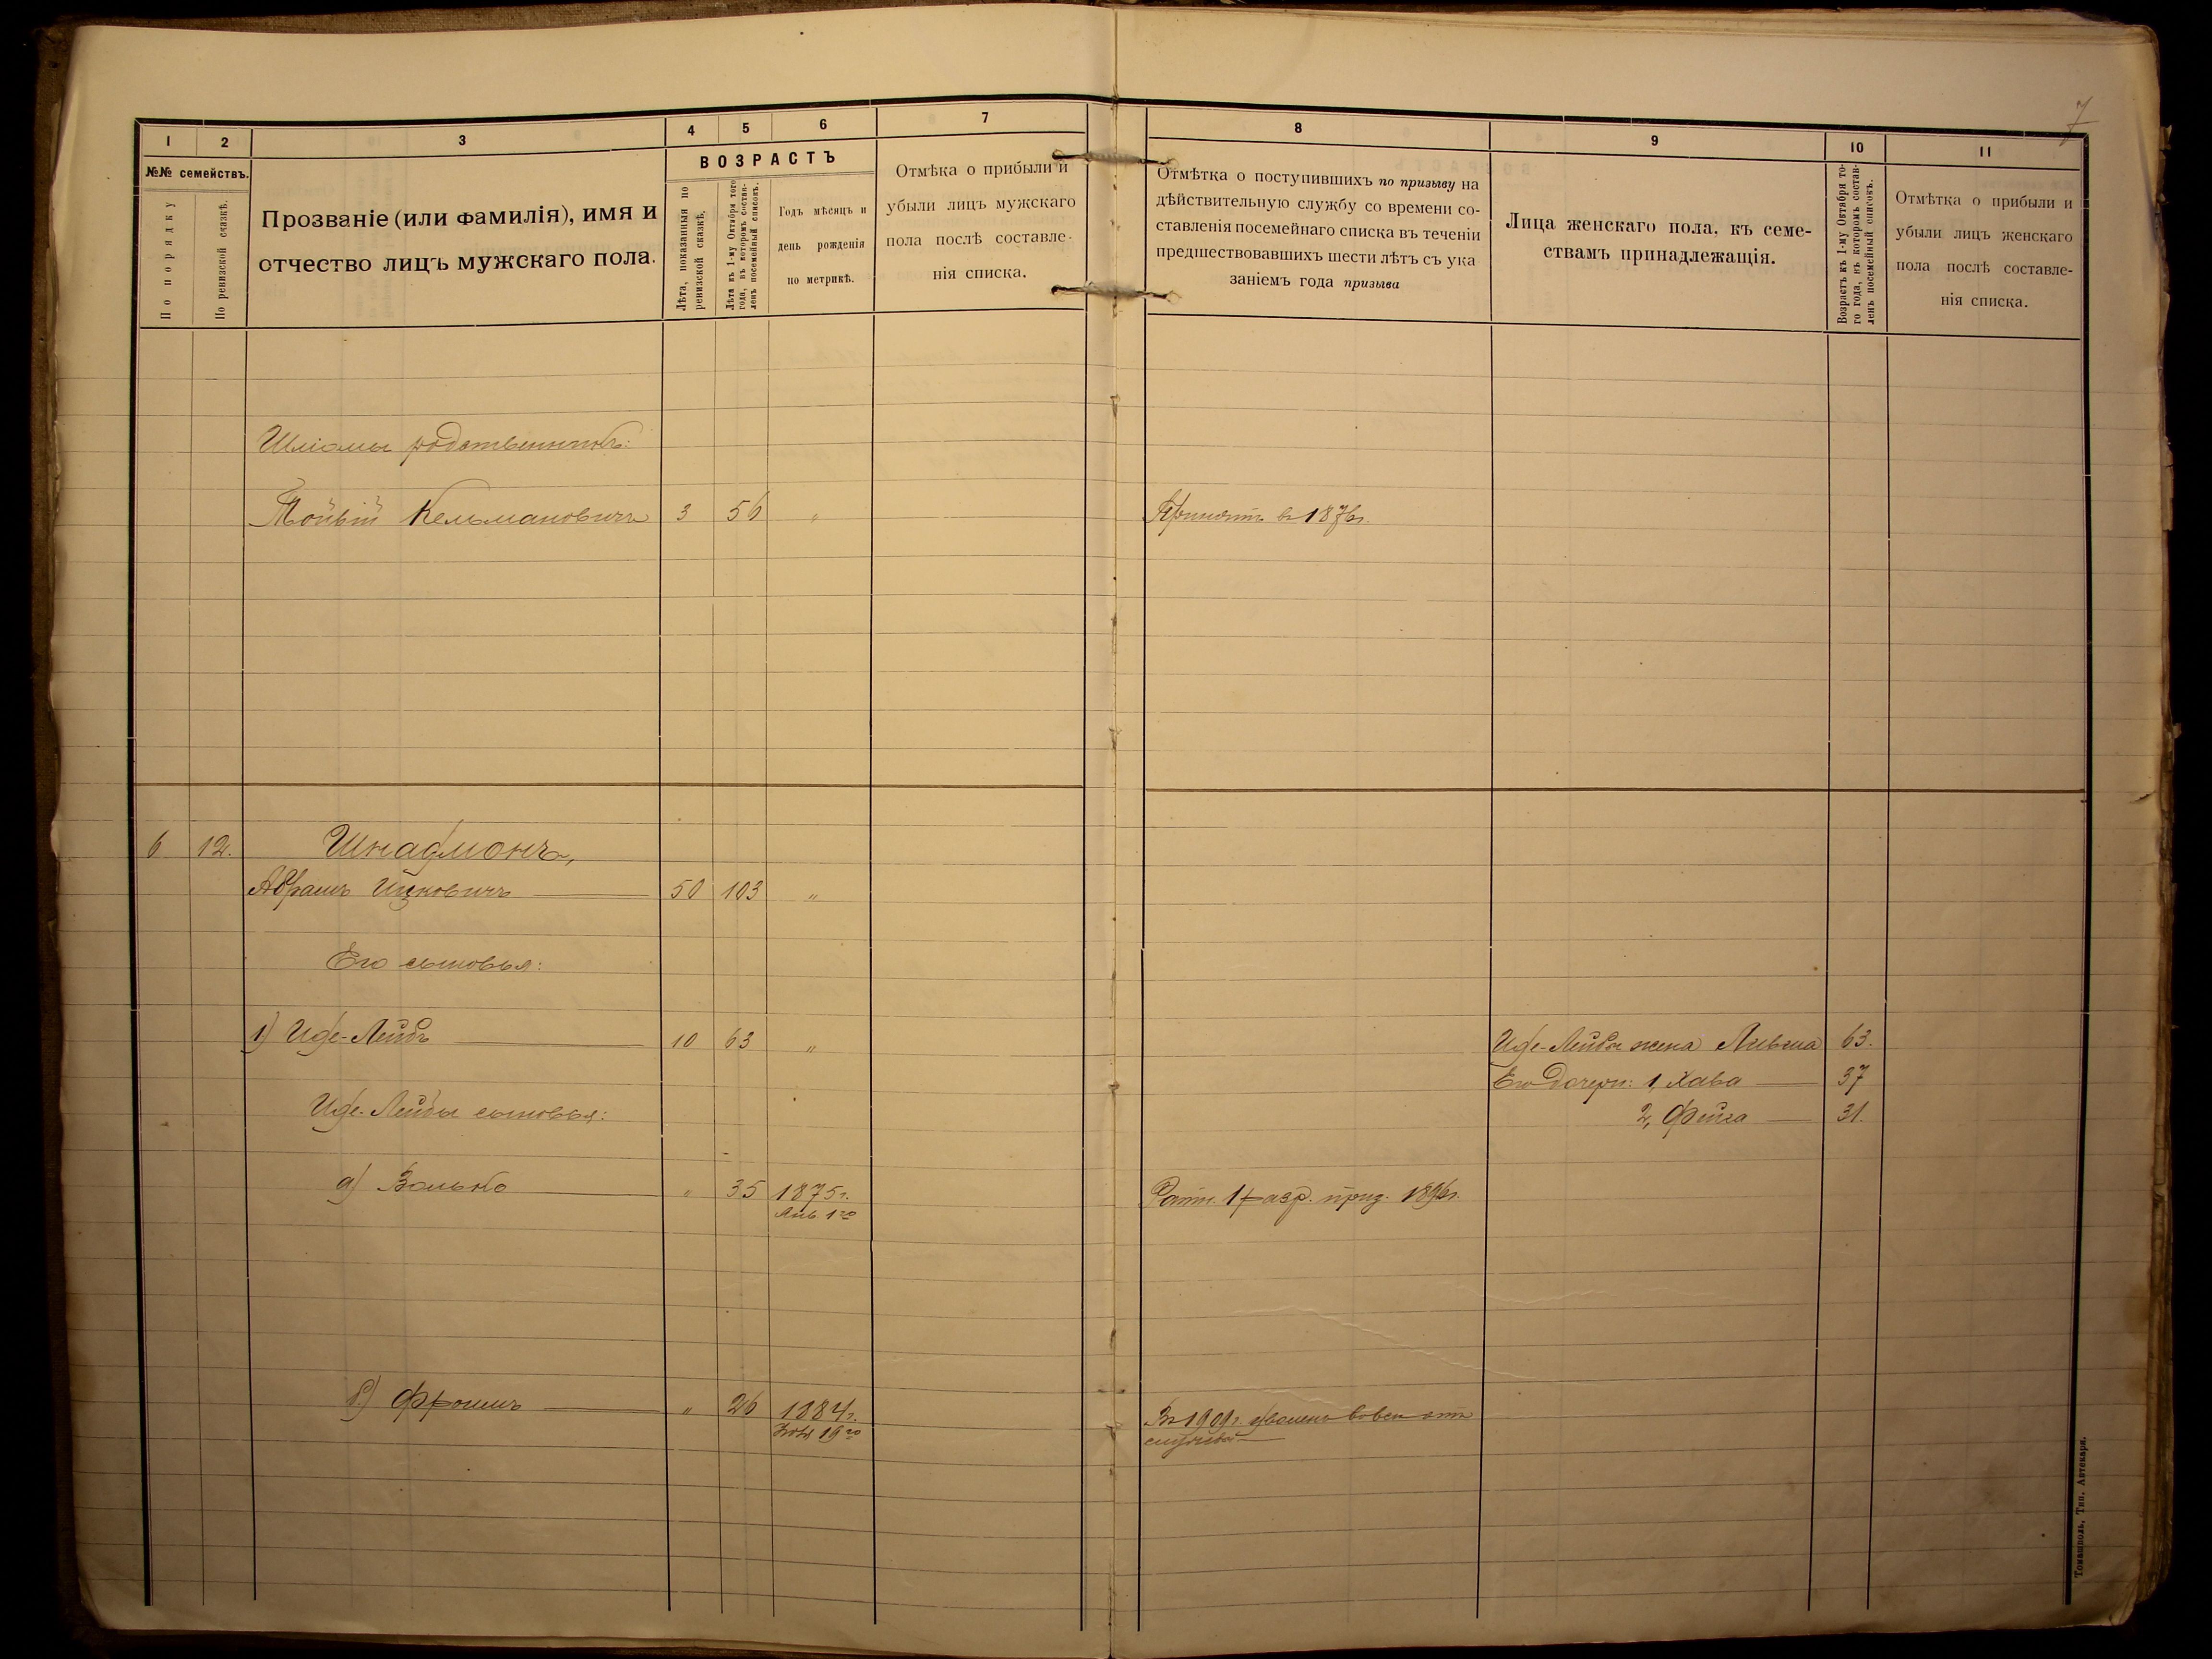 7
1
2
3
4
5
6
7
№№ семействъ.
По порядку
По ревизской сказкѣ.
Прозваніе (или фамилія), имя и
отчество лицъ мужскаго пола.
ВОЗРАСТЪ
Лѣта, показанныя по
ревизской сказкѣ.
Лѣта къ 1-му Октября того
года, въ которомъ состав-
ленъ посемейный списокъ.
Годъ мѣсяцъ и
день рожденія
по метрикѣ.
Отмѣка о прибыли и
убыли лицъ мужскаго
пола послѣ составле-
нія списка.
8
9
10
11
Отмѣтка о поступившихъ по призыву на
дѣйствительную службу со времени со-
ставленія посемейнаго списка въ теченіи
предшествовавшихъ шести лѣтъ съ ука
заніемъ года призыва
Лица женскаго пола, къ семе-
ствамъ принадлежащія.
Возрастъ къ 1-му Октября то-
го года, въ которомъ состав-
ленъ посемейный списокъ.
Отмѣтка о прибыли и
убыли лицъ женскаго
пола послѣ составле-
нія списка.
Шліомы родственникъ:
Кельмановичъ 3 56 „ Принятъ въ 1876г.
6 12.
Абрамъ Ицковичъ 50 103 „
Его сыновья:
1) Иде-Лейбъ 10 63 „ Иде-Лейбы жена 63.
Его дочери: 1, Хава 37
Иде-Лейбы сыновья: 2, Фейга 31.
а) Волько „ 35 1875г. Ратн. 1 разр. приз. 1896г.
Янв. 1го
б) Фроимъ „ 26 1884г. Въ 1909г. уволенъ вовсе отъ
19го службы
Томашполь, Тип. Аптекаря.